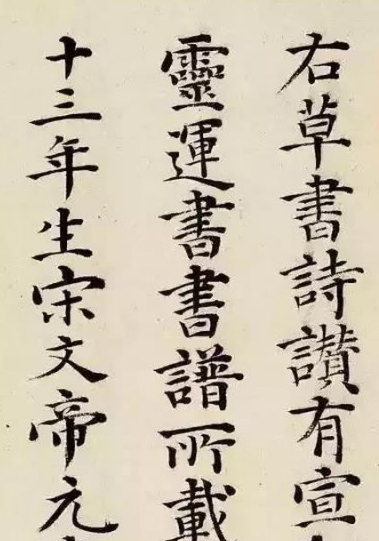 右草書詩讃有宣
靈運書書譜所載
十三年生宋文帝元